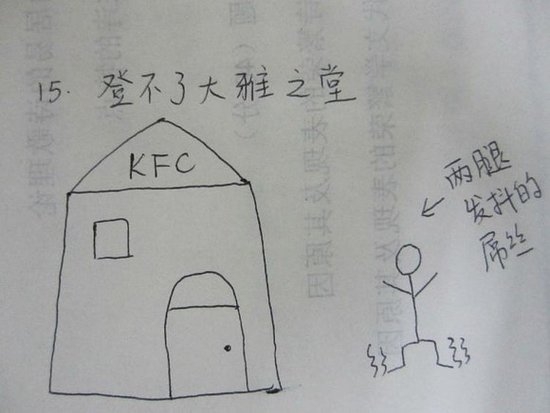 15. 登不了大雅之堂
KFC
两腿
发抖的
屌丝